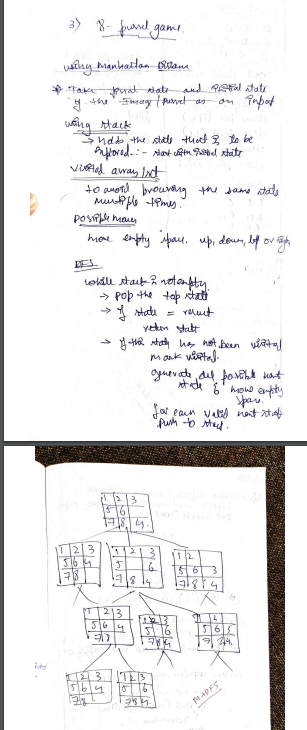 3) 8-puzzel game.
using manhattan Distance
* Take final state and initial state
of the Image puzzel as an input
using stack
→ holds the state that is to be
Explored :- start with initial state
Visited array/set
to avoid browsing the same state
multiple times.
possible moves
move empty space. up, down, left or right
DFS
while stack is not empty
→ pop the top state
→ if state = result
return state
→ if the state has not been visited
mark visited.
generate all possible next
state & move empty
space.
for each valid next state
push to stack.
1 2 3
5 6
7 8 4
1 2 3 1 2 3 1 2
5 6 4 5 6 5 6 3
7 8 7 8 4 7 8 4
1 2 3 1 2 3 1 2
5 6 4 5 6 5 6
7 8 7 8 4 7
1 2 3 1 2 3
5 6 4 5 6
7 8 7 8 4